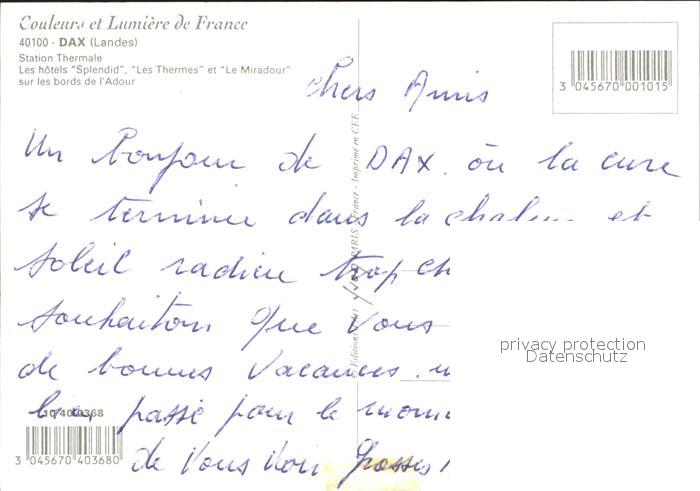 Couleurs et Lumière de France
40100 - DAX (Landes)
Station Thermale
Les hôtels "Splendid", "Les Thermes" et "Le Miradour"
sur les bords de l'Adour
3 045670 001015
chers Amis
Un Bonjour de DAX. où la cure
se termine dans la chal et
Soleil radieu trop ch
Souhaitons que Vous
privacy protection
Datenschutz
de bonnes Vacances.
bien passé pour le mom
10/400368
3 045670 403680
de Vous Voir Grosses
PARIS France - Imprimé en CEE